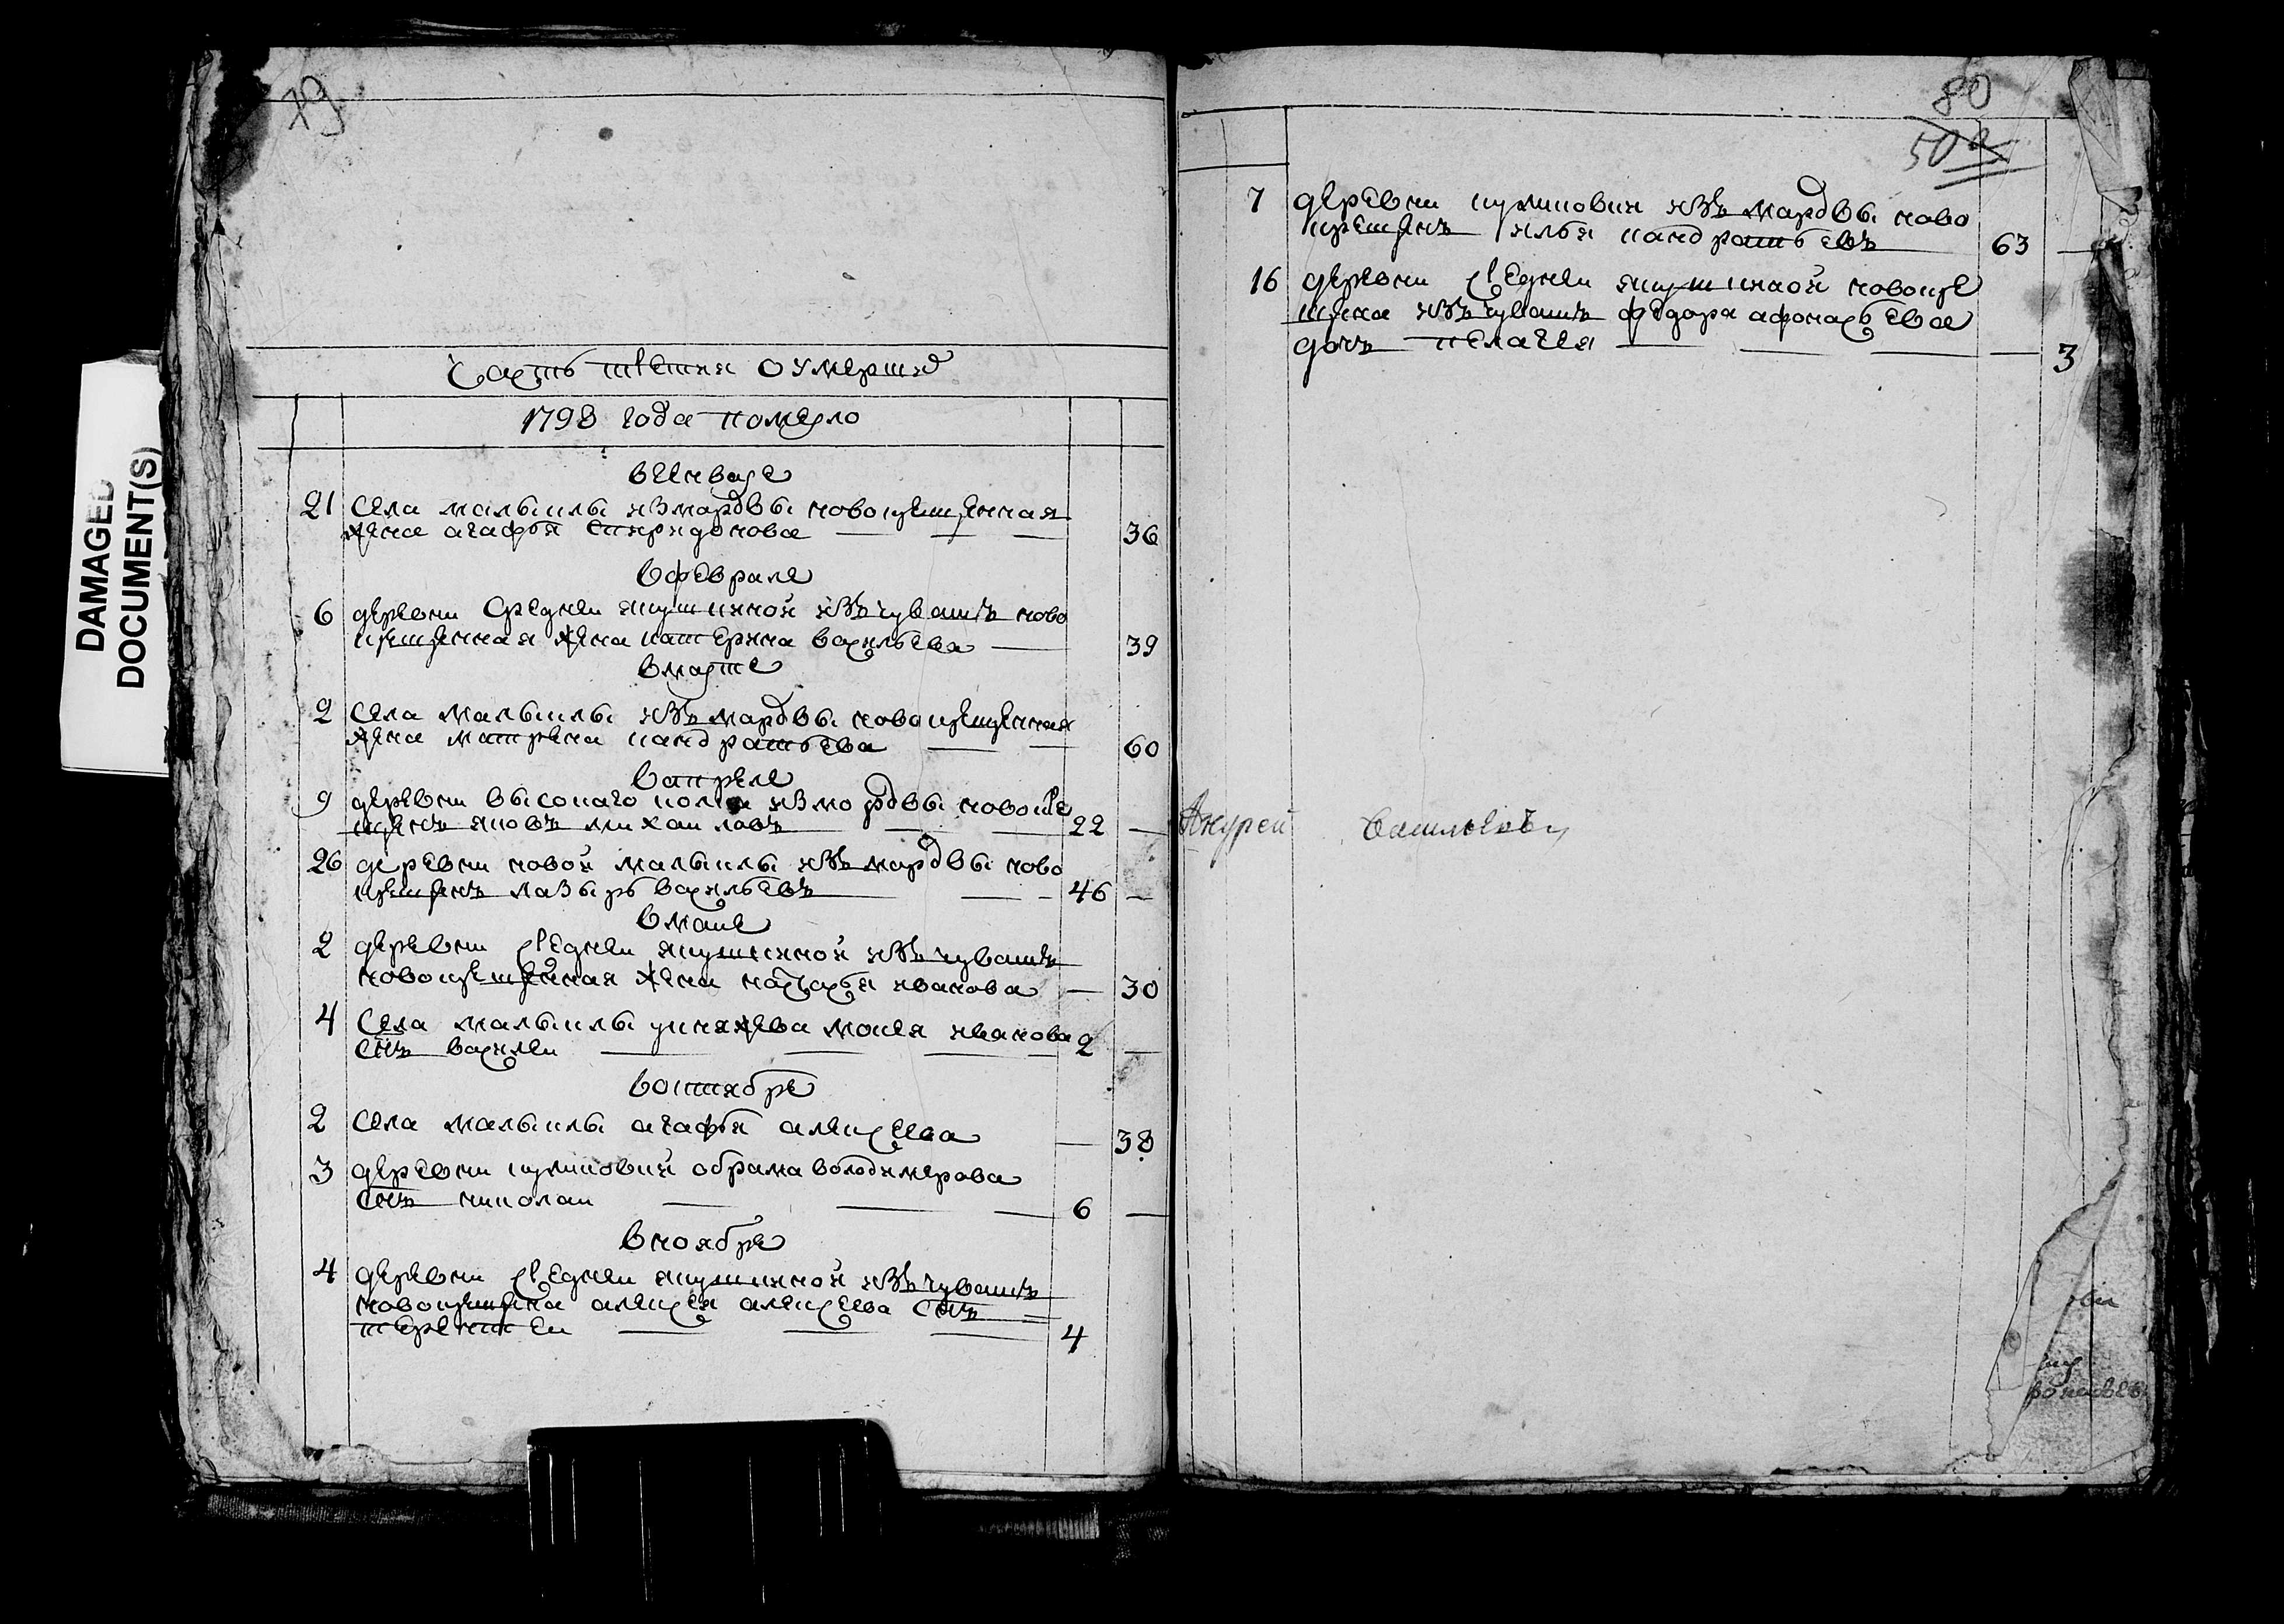 79
Часть третия оумершiя
1798 года померло
вгенваре
21 села малыклы измордвы новокрещенная
жена агафiя спиридонова — — — 36
вфеврале
6 деревни средней якушкиной изъ чувашъ ново
крещенная жена катерина васильева — 39
вмарте
2 села малыклы изъ мордвы новокрещенная
жена матрена кандратьева — — 60
вапреле
9 деревни высокаго колка измордвы новокре
щенъ яковъ михаиловъ — — 22 —
26 деревни новой малыклы изъ мордвы ново
крещенъ лазырь васильевъ — — 46 —
вмаие
2 деревни средней якушкиной изъ чувашъ
новокрещенная жена настасья иванова — 30
4 села малыклы моисея иванова
снъ василеи — — — — 2 —
воктябре
2 села малыклы агафiя алексеева — 38
3 деревни обрама володимерова
снъ николаи — — — 6 —
вноябре
4 деревни средней якушкиной изъ чувашъ
новокрещена алексея алексеева снъ
терентеи — — — 4
80
50
7 деревни изъ мордвы ново
крещенъ илья кандратьевъ 63 —
16 деревни средней якушкинаой новокре
щена изъ чувашъ федора афонасьева
дочь пелагея — — — — 3
Васильевъ
DAMAGED
DOCUMENT(S)